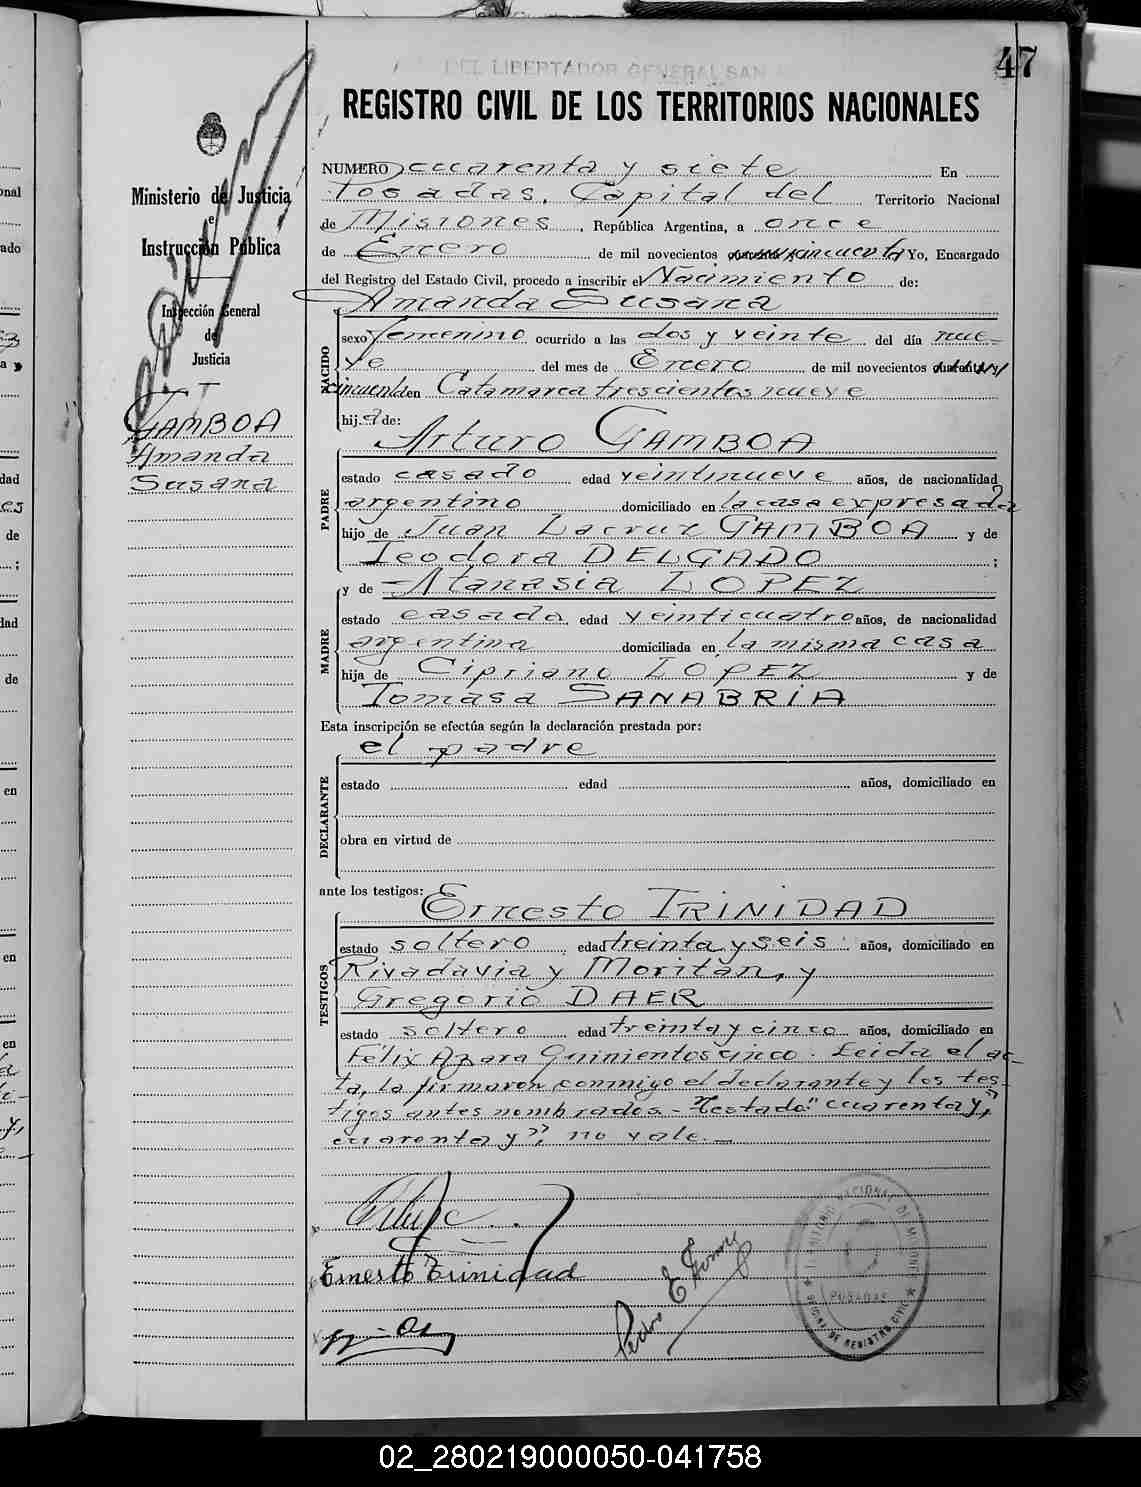 47
DEL LIBERTADOR GENERAL SAN
REGISTRO CIVIL DE LOS TERRITORIOS NACIONALES
Ministerio de Justicia
e
Instrucción Pública
Inspección General
de
Justicia
GAMBOA
Amanda
Susana
NUMERO cuarenta y siete En
Posadas, Capital del Territorio Nacional
de Misiones, República Argentina, a once
de Enero de mil novecientos cincuenta Yo, Encargado
del Registro del Estado Civil, procedo a inscribir el Nacimiento de:
Amanda Susana
NACIDO
sexo femenino ocurrido a las dos y veinte del día nue-
ve del mes de Enero de mil novecientos cuarenta y
cincuenta en Catamarca trescientos nueve
hija de:
Arturo GAMBOA
PADRE
estado casado edad veintinueve años, de nacionalidad
argentino domiciliado en la casa expresada
hijo de Juan Lacruz GAMBOA y de
Teodora DELGADO ;
y de Atanasia LOPEZ
MADRE
estado casada edad veinticuatro años, de nacionalidad
argentina domiciliada en la misma casa
hija de Cipriano LOPEZ y de
Tomasa SANABRIA
Esta inscripción se efectúa según la declaración prestada por:
el padre
DECLARANTE
estado edad años, domiciliado en
obra en virtud de
ante los testigos:
Ernesto TRINIDAD
TESTIGOS
estado soltero edad treinta y seis años, domiciliado en
Rivadavia y Moritán, y
Gregorio DAER
estado soltero edad treinta y cinco años, domiciliado en
Félix Azara Quinientos cinco. Leida el ac-
ta, la firmaron conmigo el declarante y los tes-
tigos antes nombrados.- Testado: "cuarenta y",
cuarenta y", no vale.-
Ernesto Trinidad
Pedro E
TERRITORIO NACIONAL DE MISIONES
POSADAS
OFICINA DE REGISTRO CIVIL
02_280219000050-041758